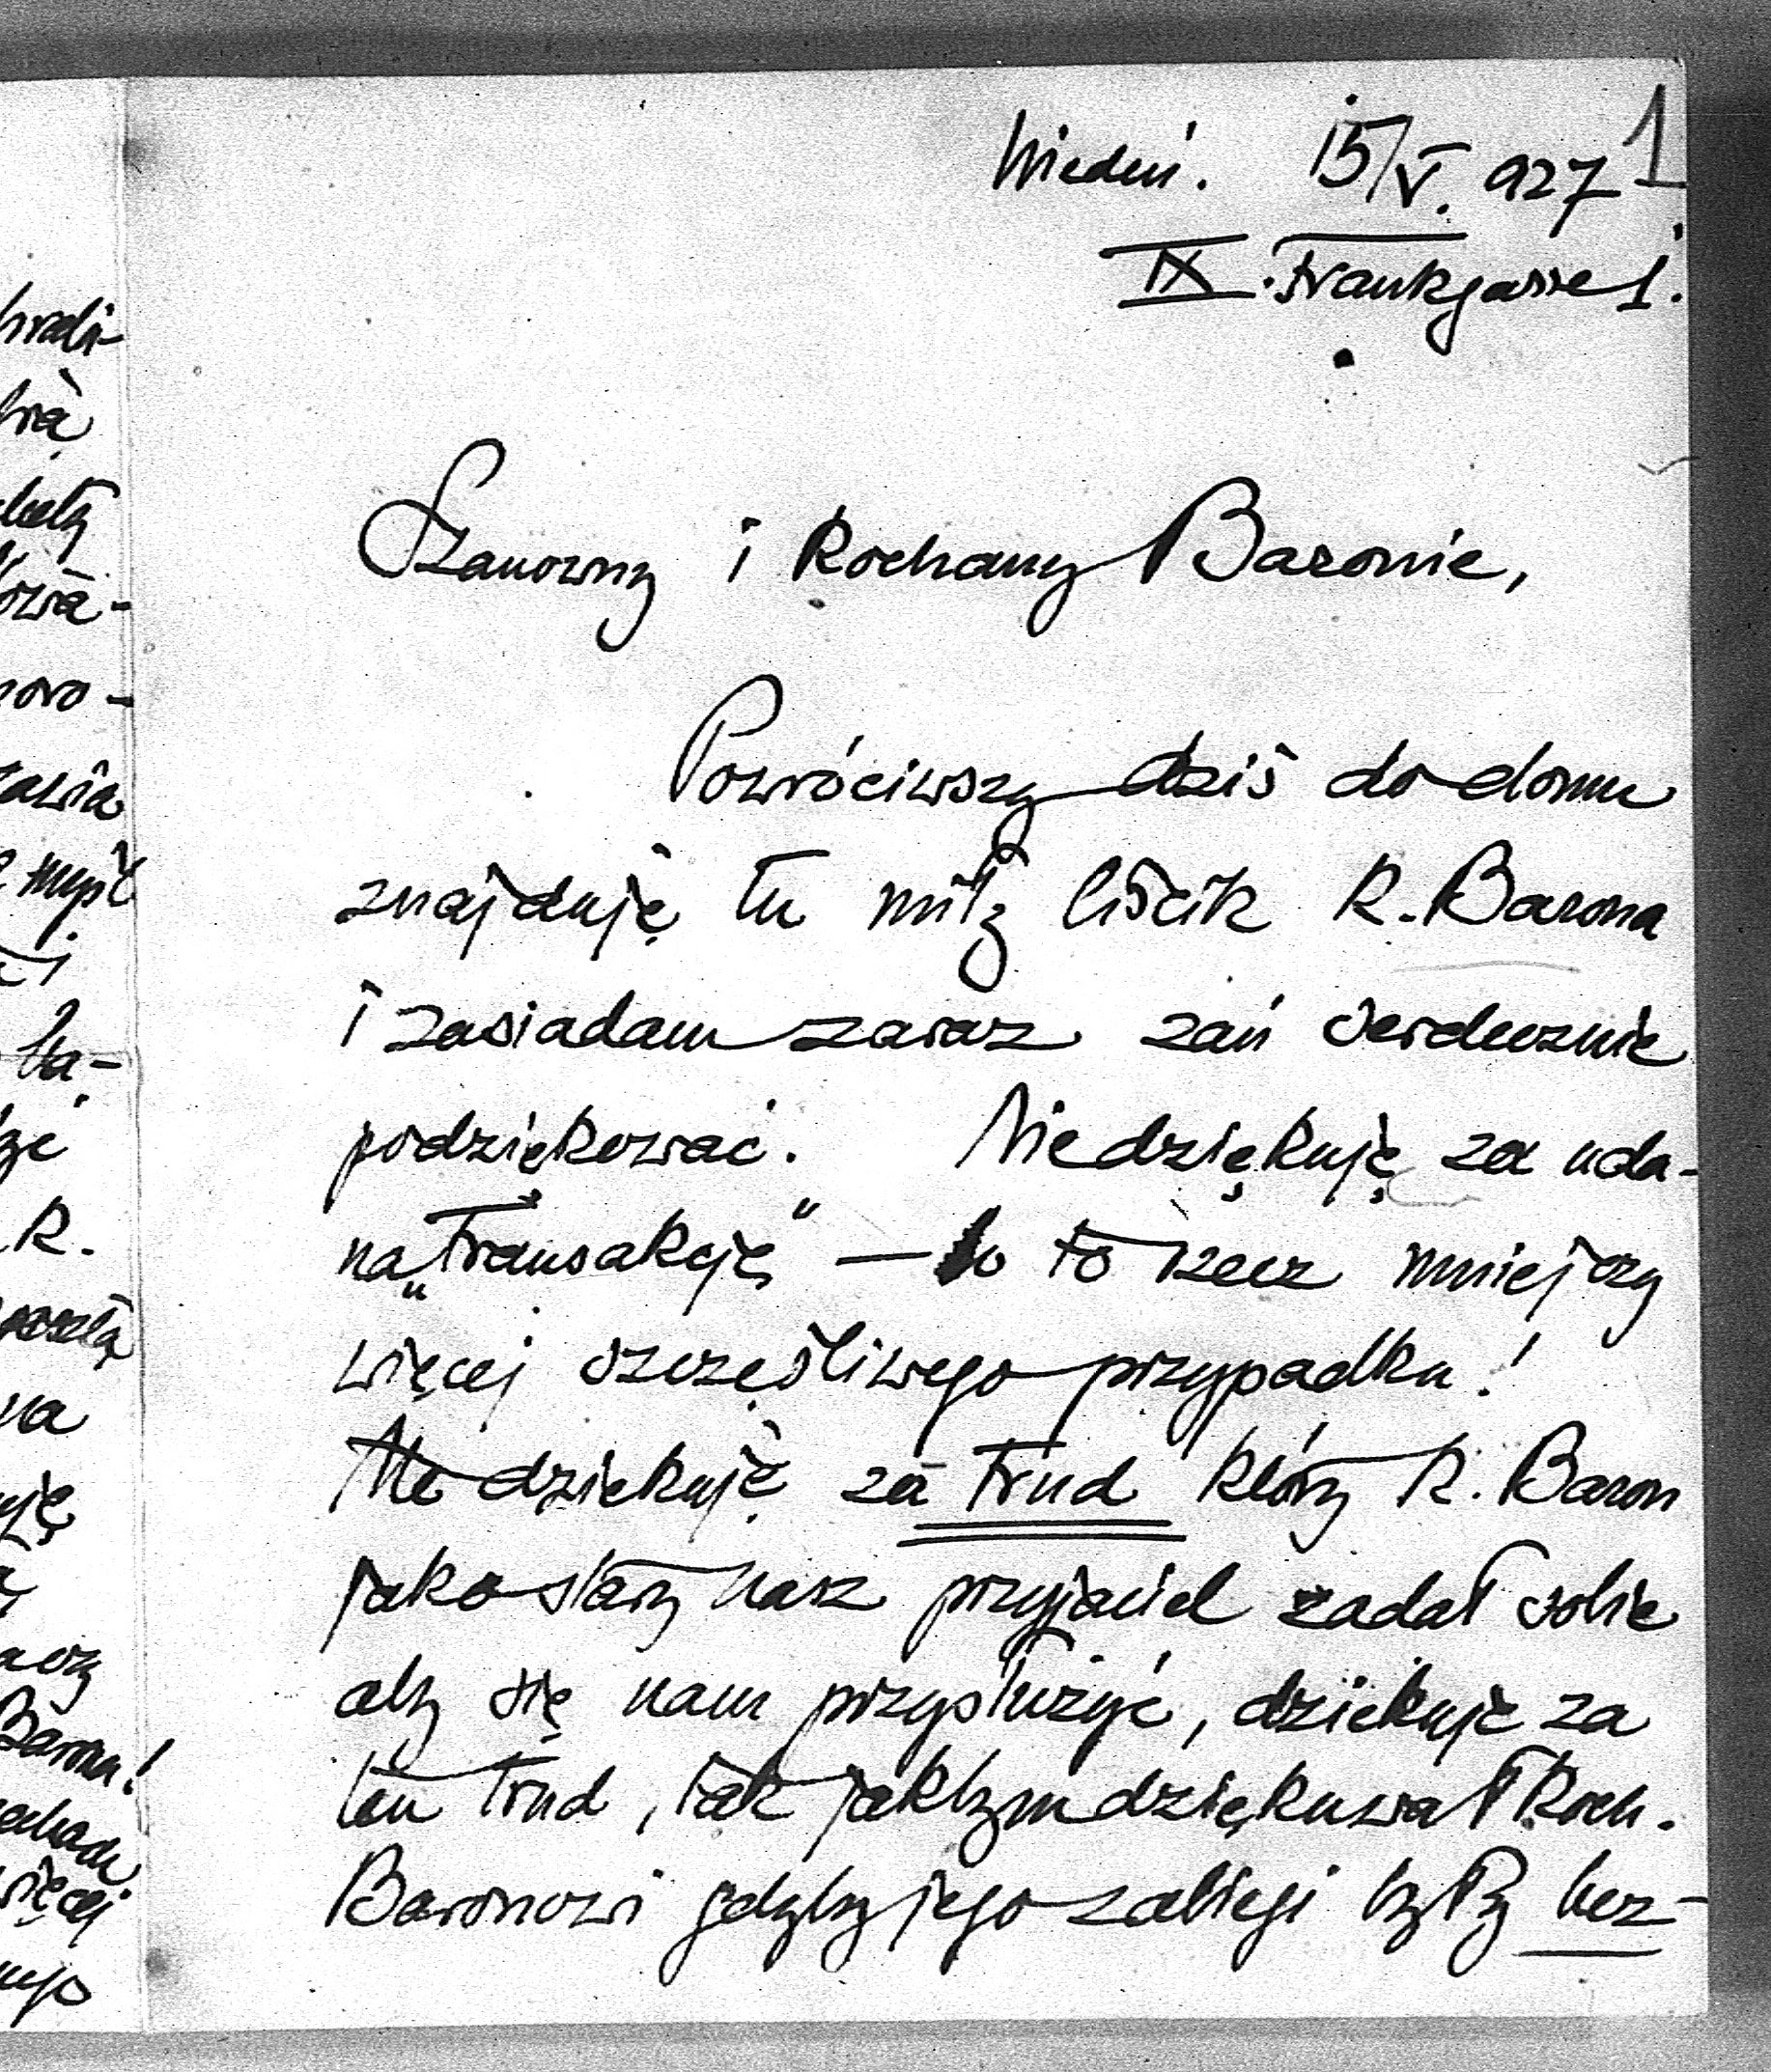 Wiedeń. 15/V. 927
1
IX. Frankgasse 1.
Szanowny i Kochany Baronie,
Powróciwszy dziś do domu
znajduję tu miły liścik K. Barona
i zasiadam zaraz zań serdecznie
podziękować. Nie dziękuję za uda-
ną „transakcję" — bo to rzecz mniej czy
więcej szczęśliwego przypadku!
Ale dziękuję za trud który K. Baron
jako stary nasz przyjaciel zadał sobie
aby się nam przysłużyć, dziękuję za
ten trud, tak jakbym dziękował Koch.
Baronowi gdyby jego zabiegi były bez-
wią
nowo-
K.
na
Barona!
więcej